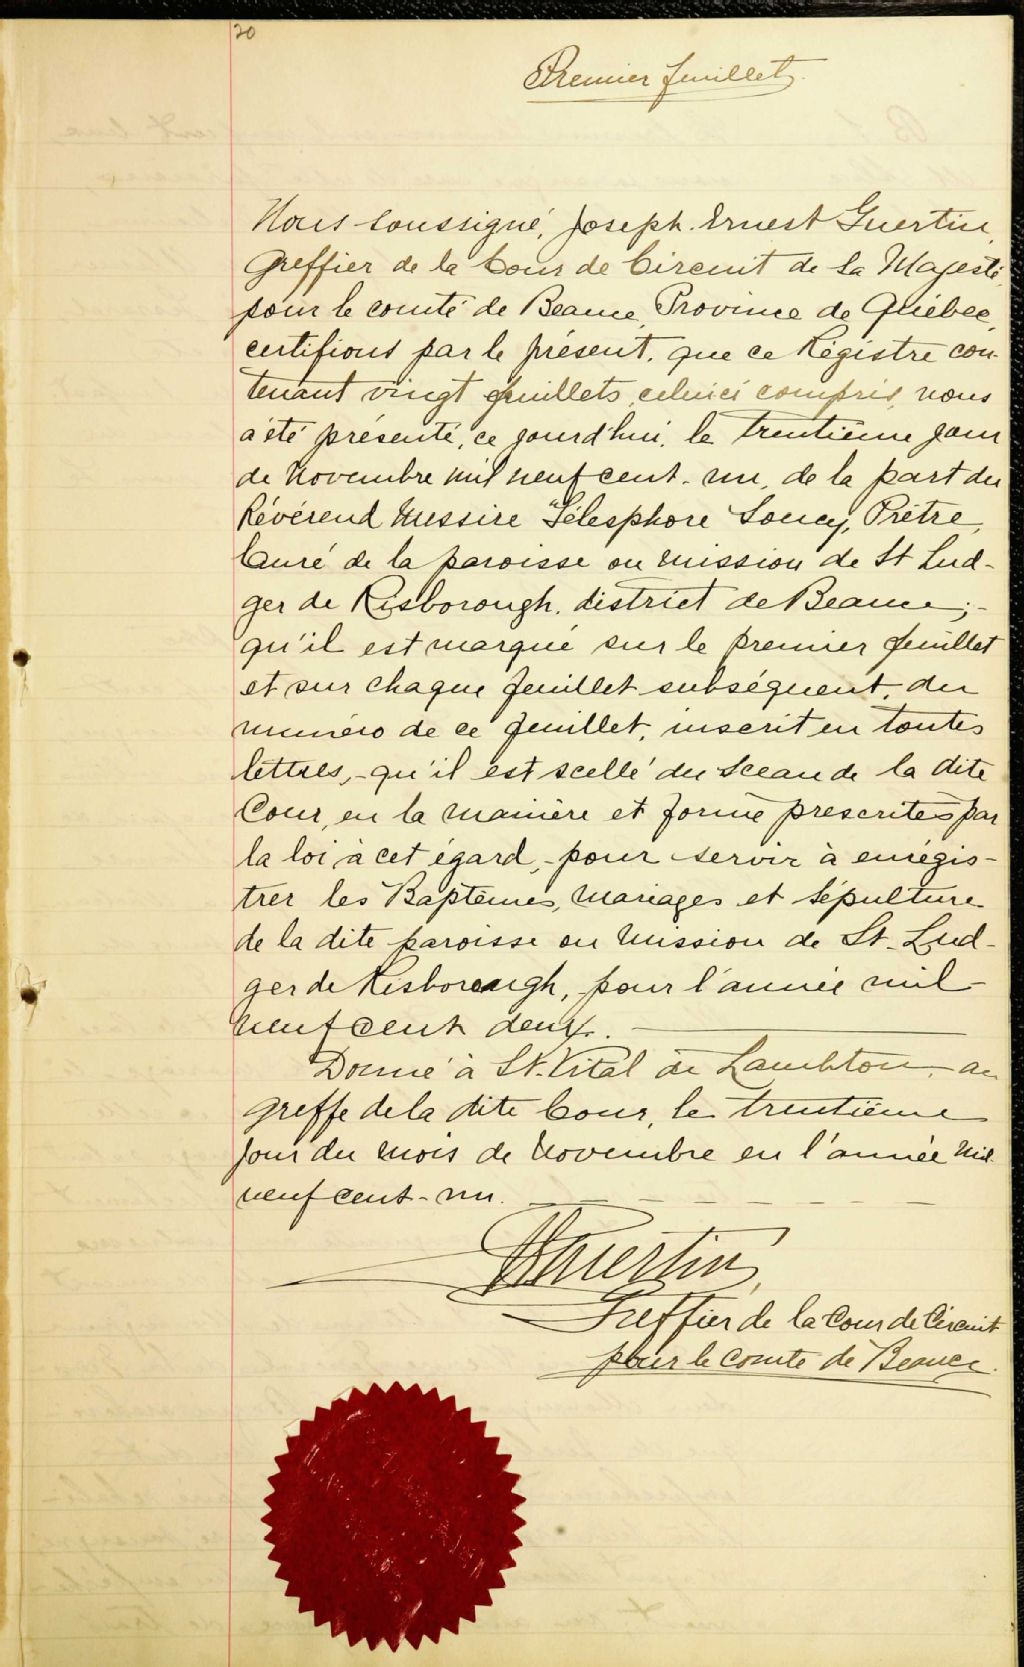 20
Premier feuillet.
Nous soussigné, Joseph. Ernest Guertin,
Greffier de la Cour de Circuit de Sa Majesté,
pour le comté de Beauce, Province de Québec,
certifions par le présent, que ce Régistre con-
tenant vingt feuillets, celui ci compris, nous
a été présenté, ce jourd'hui, le trentième jour
de Novembre mil neuf cent-un, de la part du
Révérend Messire Télesphore Soucy, Prêtre,
Curé de la paroisse ou mission de St Lud-
ger de Risborough, district de Beauce;-
qu'il est marqué sur le premier feuillet
et sur chaque feuillet subséquent, du
numéro de ce feuillet, inscrit en toutes
lettres,-qu'il est scellé du Sceau de la dite
Cour, en la manière et forme prescrites par
la loi à cet égard,-pour servir à enrégis-
trer les Baptêmes, mariages et Sépulture
de la dite paroisse ou Mission de St. Lud-
ger de Risborough, pour l'année mil
neuf cent deux.
Donné à St. Vital de Lambton, au
greffe de la dite Cour, le trentième
jour du mois de Novembre en l'année Mil
neuf cent-un.
Guertin,
Greffier de la Cour de Circuit
pour le Comté de Beauce.